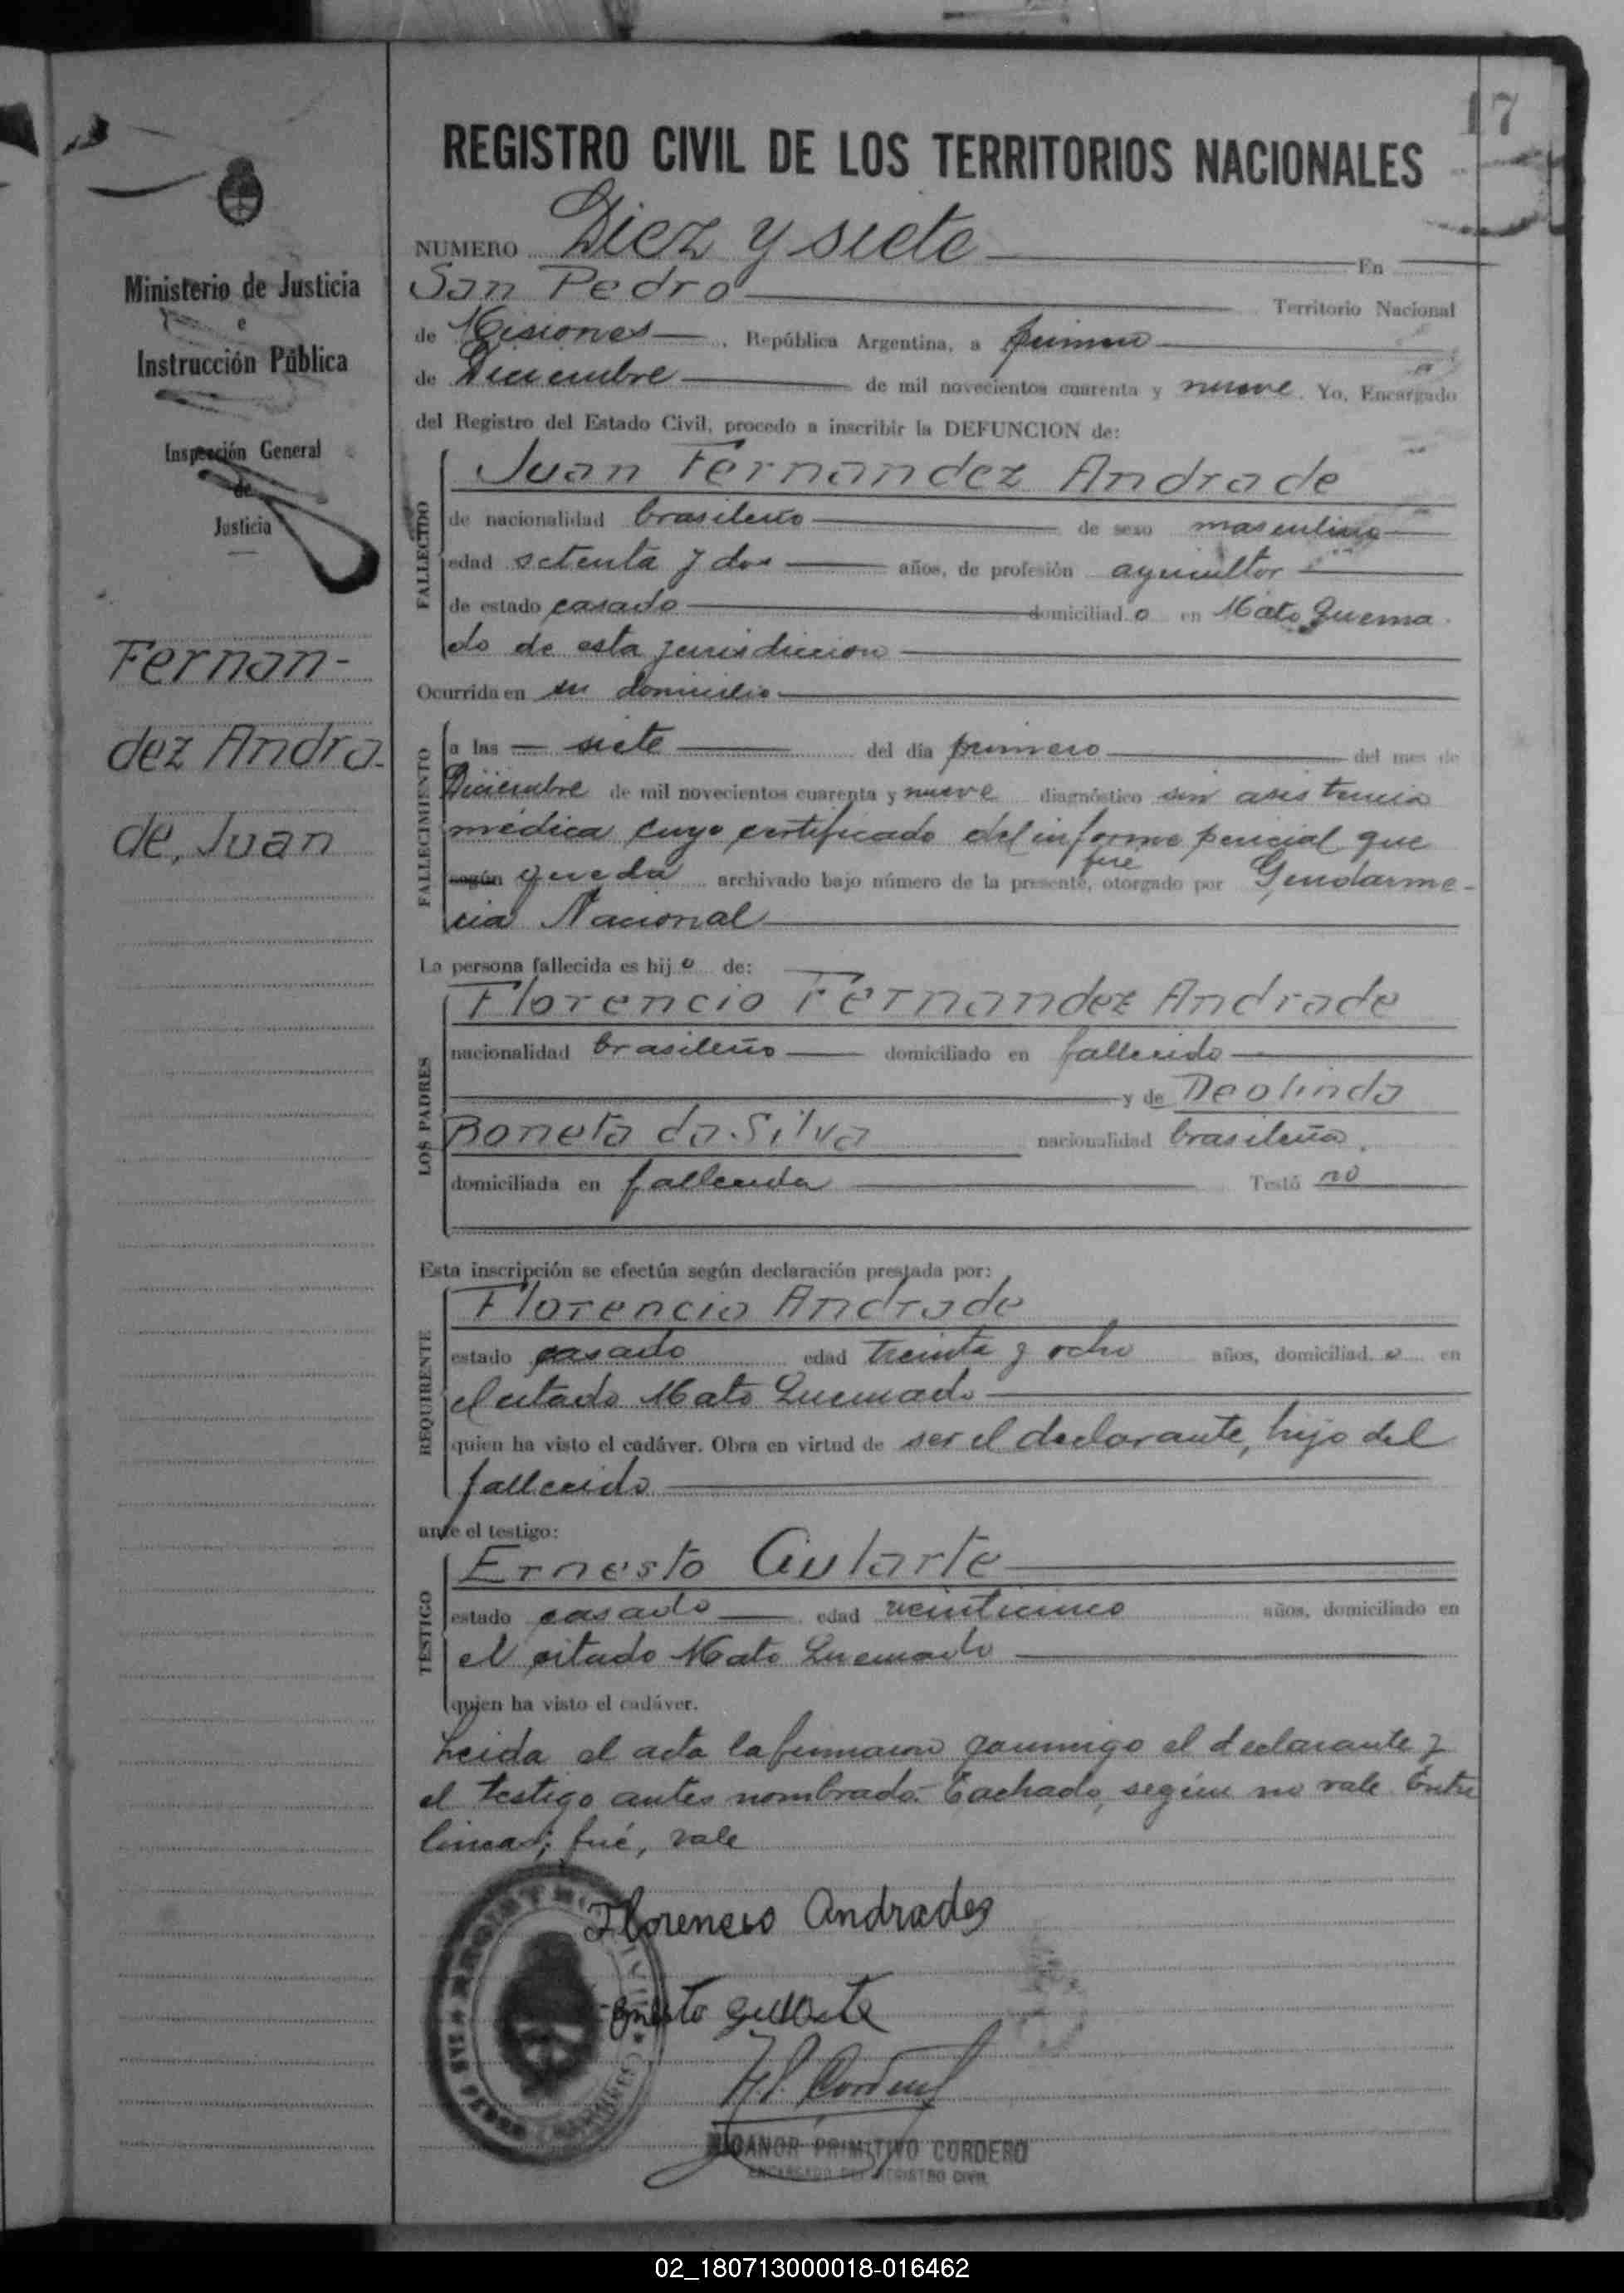 17
REGISTRO CIVIL DE LOS TERRITORIOS NACIONALES
NUMERO Diez y siete En
San Pedro Territorio Nacional
de Misiones, República Argentina, a primero
de Diciembre de mil novecientos cuarenta y nueve. Yo, Encargado
del Registro del Estado Civil, procedo a inscribir la DEFUNCION de:
Ministerio de Justicia
e
Instrucción Pública
Inspección General
de
Justicia
Fernan-
dez Andra-
de, Juan
FALLECIDO
Juan Fernandez Andrade
de nacionalidad brasileño de sexo masculino
edad setenta y dos años, de profesión agricultor
de estado casado domiciliado en Mato Quema
do de esta jurisdiccion
Ocurrida en su domicilio
FALLECIMIENTO
a las siete del día primero del mes de
Diciembre de mil novecientos cuarenta y nueve diagnóstico sin asistencia
médica cuyo certificado del informe pericial que
fue
según queda archivado bajo número de la presente, otorgado por Gendarme-
ria Nacional
La persona fallecida es hijo de:
LOS PADRES
Florencio Fernandez Andrade
nacionalidad brasileño domiciliado en fallecido
y de Deolinda
Boneta da Silva nacionalidad brasileña,
domiciliada en fallecida Testó no
Esta inscripción se efectúa según declaración prestada por:
REQUIRENTE
Florencio Andrade
estado casado edad treinta y ocho años, domiciliado en
el citado Mato Quemado
quien ha visto el cadáver. Obra en virtud de ser el declarante, hijo del
fallecido
ante el testigo:
TESTIGO
Ernesto Gularte
estado casado edad veinticinco años, domiciliado en
el citado Mato Quemado
quien ha visto el cadáver.
Leida el acta la firmaron conmigo el declarante y
el testigo antes nombrado.- Tachado, según no vale. Entre
lineas; fué, vale
Florencio Andrades
Ernesto Gularte
N.P. Cordero
NICANOR PRIMITIVO CORDERO
ENCARGADO DEL REGISTRO CIVIL
02_180713000018-016462